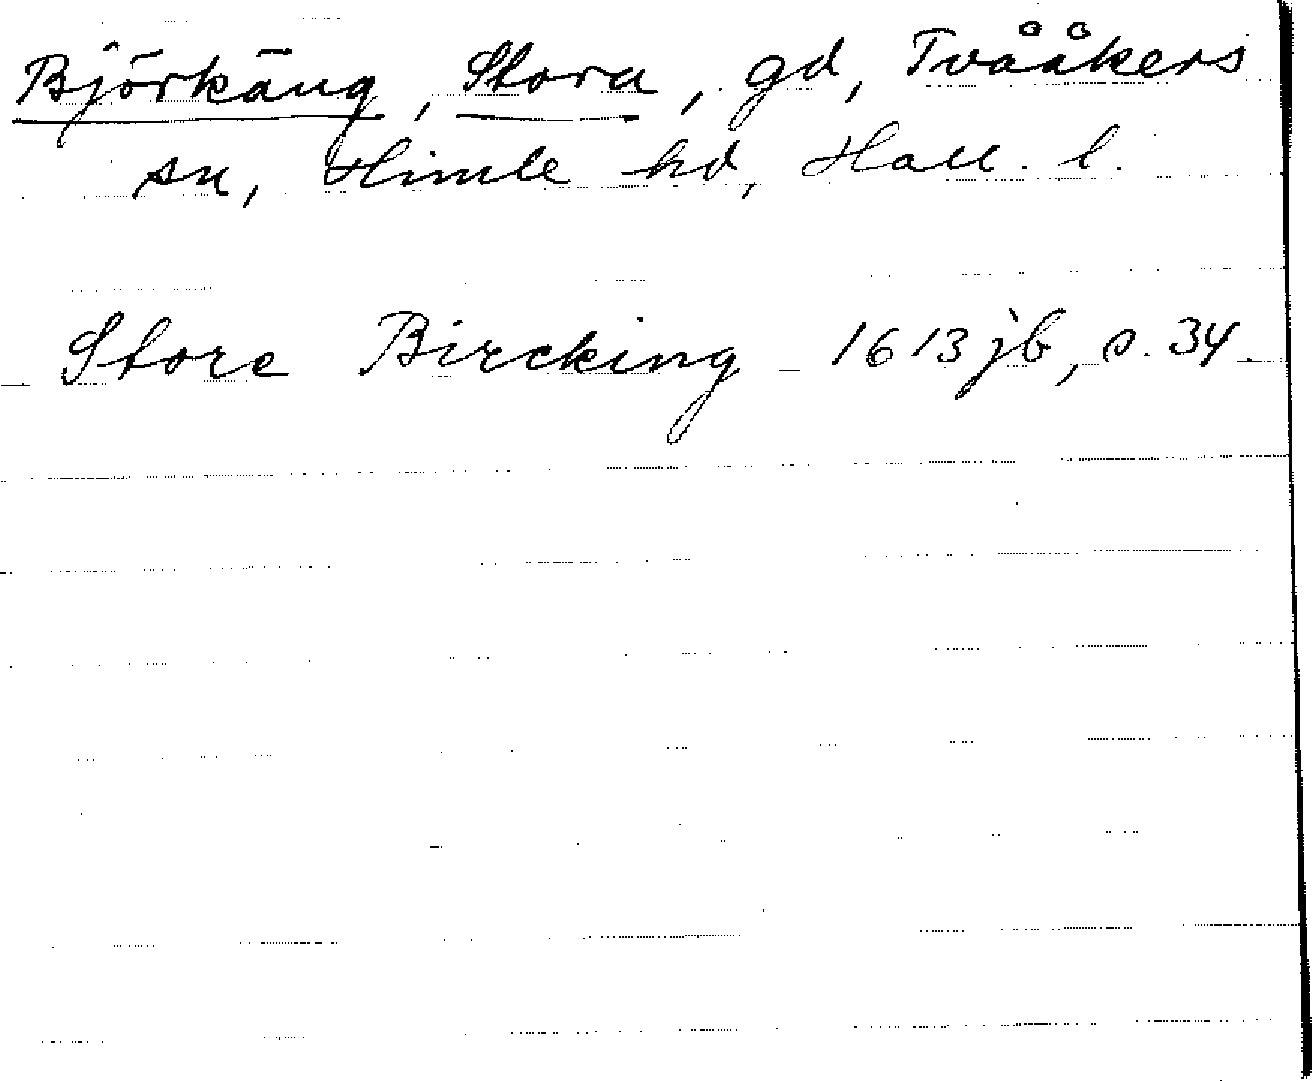 Björkäng, Stora, gd, Tvååkers
sn, Himle hd, Hall. l.
Store Bircking 1613 jb, s. 34.